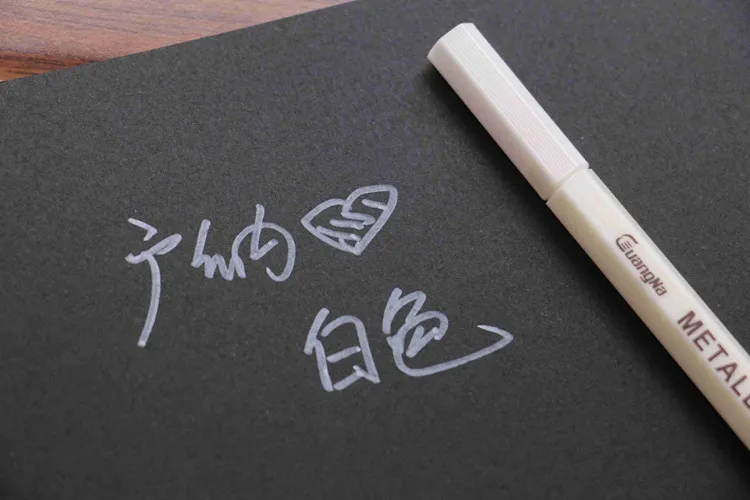 广纳
白色
GuangNa
METALL